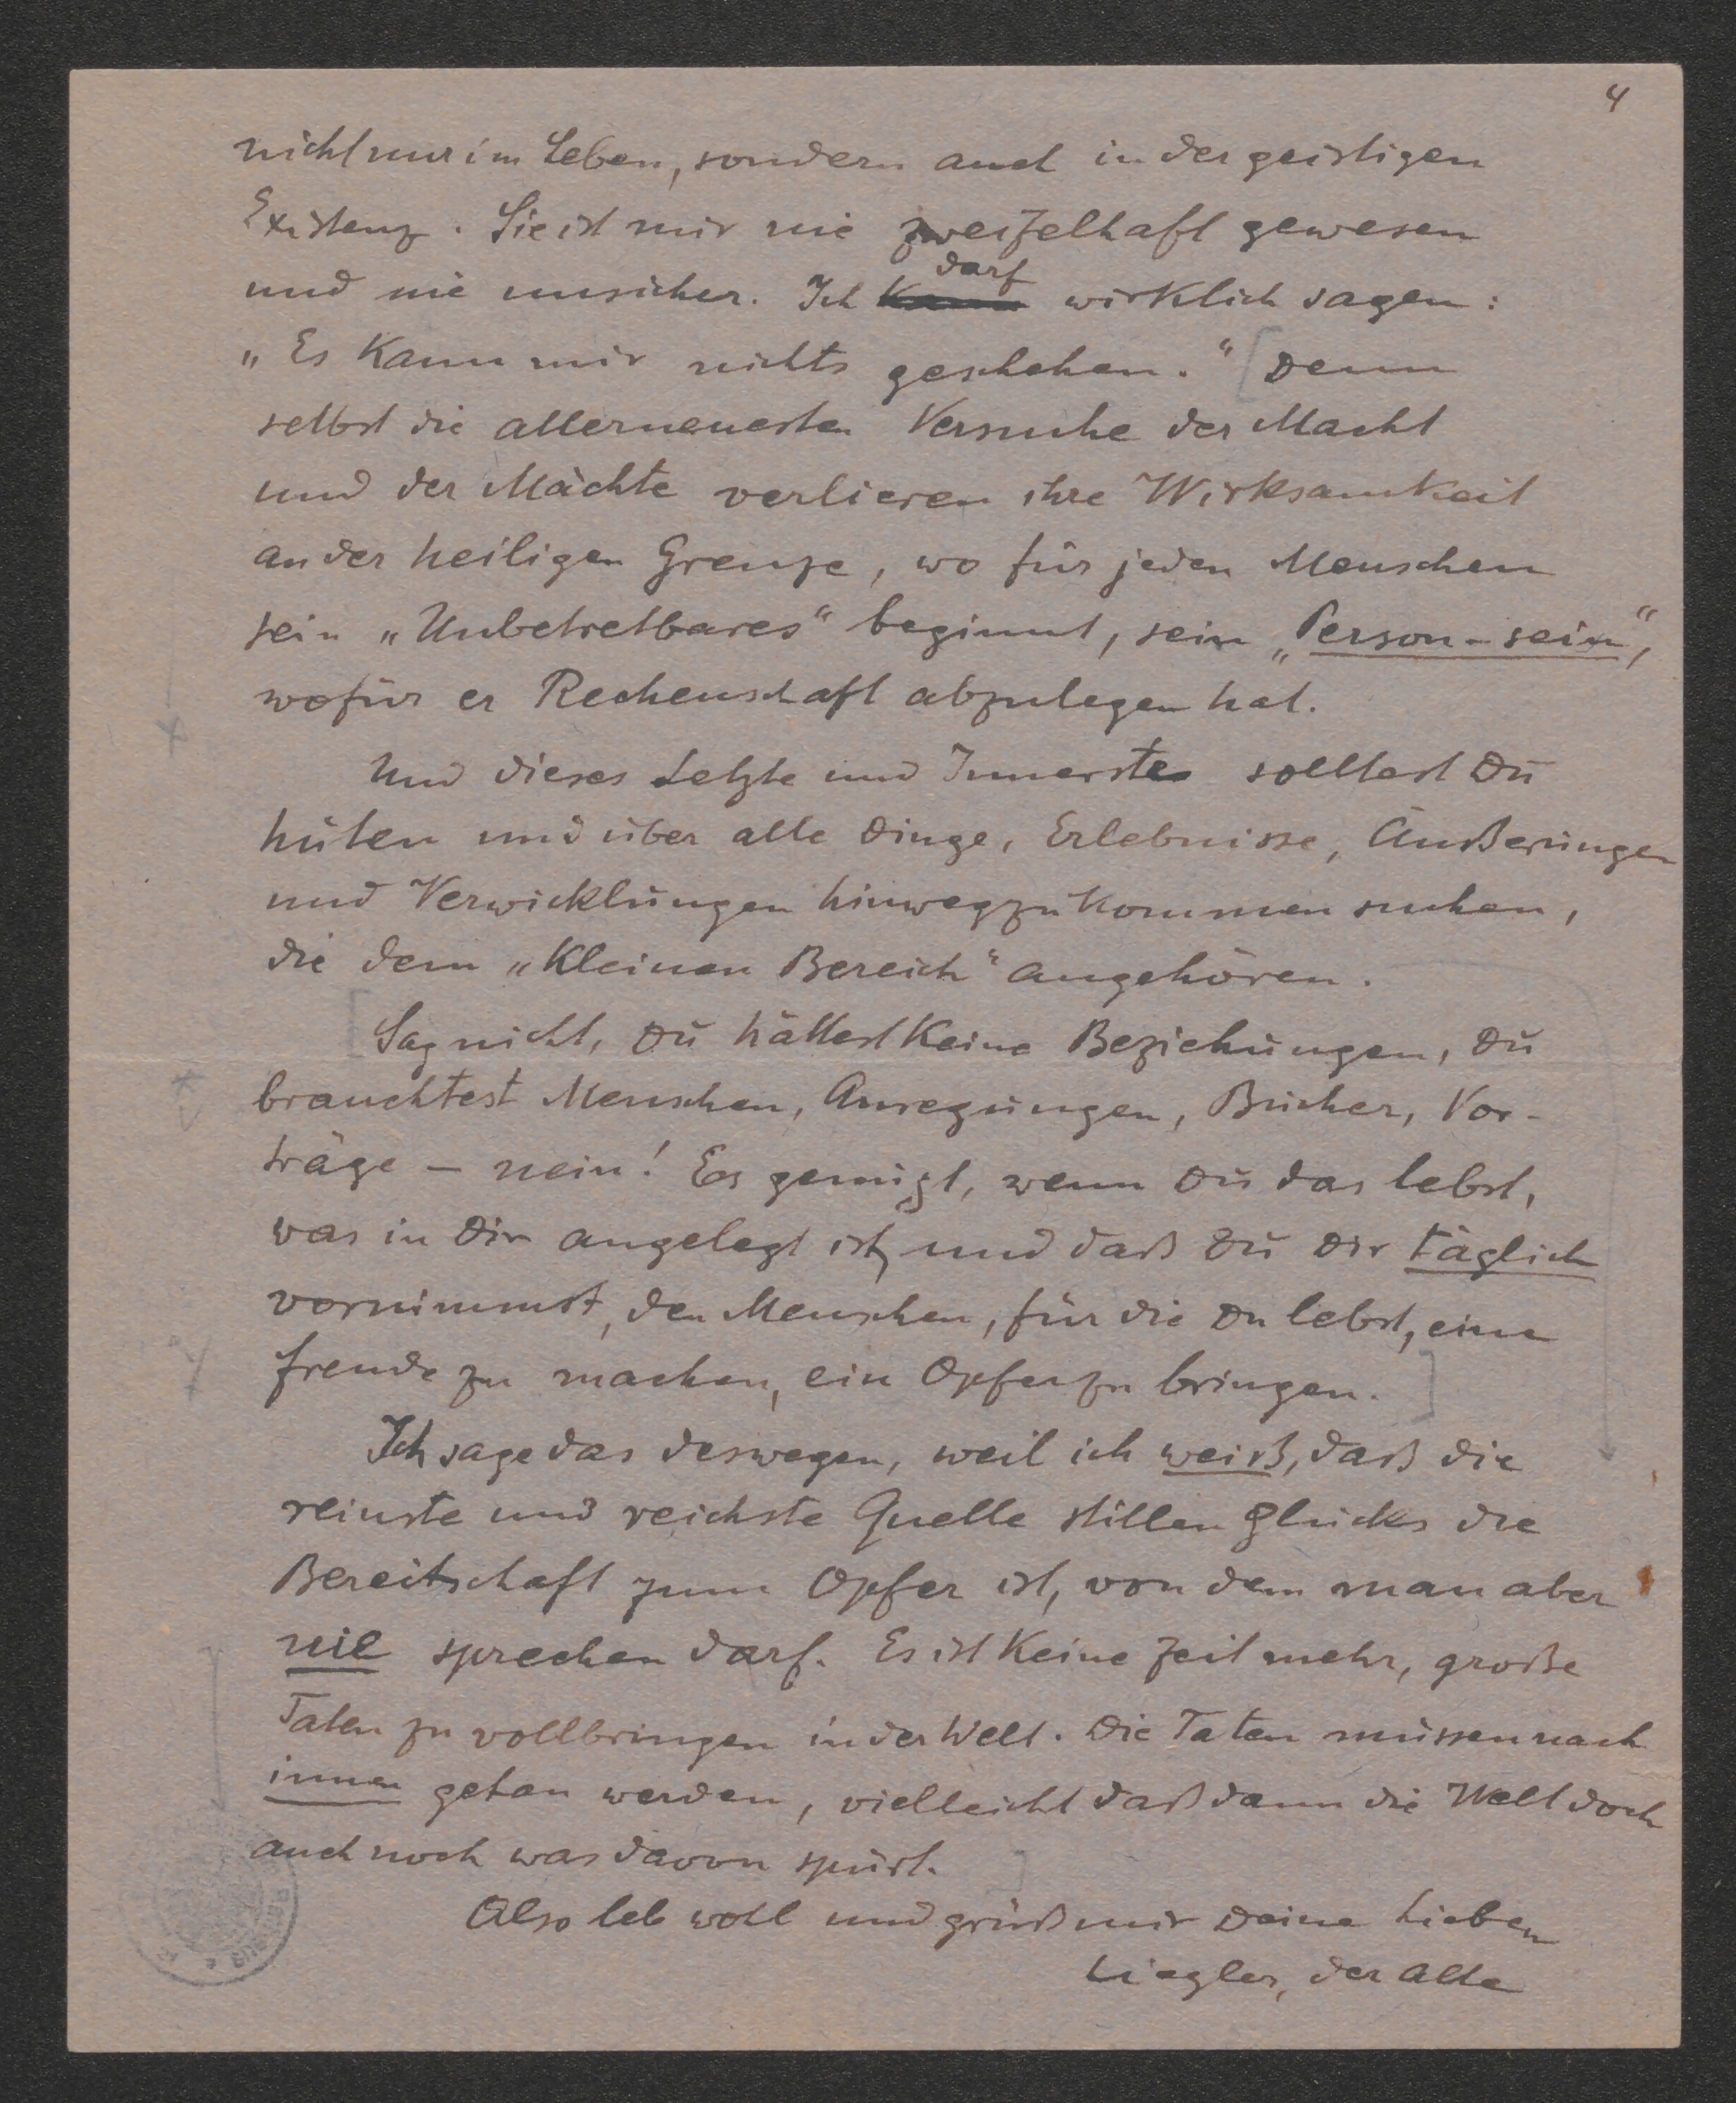 4
nicht nur im Leben, sondern auch in der geistigen
Existenz. Sie ist mir nie zweifelhaft gewesen
darf
und nie unsicher. Ich kann wirklich sagen:
„Es kann mir nichts geschehen.“ [Denn
selbst die allerneuesten Versuche der Macht
und der Mächte verlieren ihre Wirksamkeit
an der heiligen Grenze, wo für jeden Menschen
sein „Unbetretbares“ beginnt, sein „Person-sein“,
wofür er Rechenschaft abzulegen hat.
Und dieses Letzte und Innerste solltest Du
hüten und über alle Dinge, Erlebnisse, Äußerungen
und Verwicklungen hinwegzukommen suchen,
die dem „kleinen Bereich“ angehören.
[Sag nicht, Du hättest keine Beziehungen, Du
brauchtest Menschen, Anregungen, Bücher, Vor-
träge – nein! Es genügt, wenn Du das lebst,
was in Dir angelegt ist, und daß Du Dir täglich
vornimmst, den Menschen, für die Du lebst, eine
Freude zu machen, ein Opfer zu bringen.]
Ich sage das deswegen, weil ich weiß, daß die
reinste und reichste Quelle stillen Glücks die
Bereitschaft zum Opfer ist, von dem man aber
nie sprechen darf. Es ist keine Zeit mehr, große
Taten zu vollbringen in der Welt. Die Taten müssen nach
innen getan werden, vielleicht daß dann die Welt doch
auch noch was davon spürt.]
Also leb wohl und grüß mir Deine Lieben
Liegler, der Alte